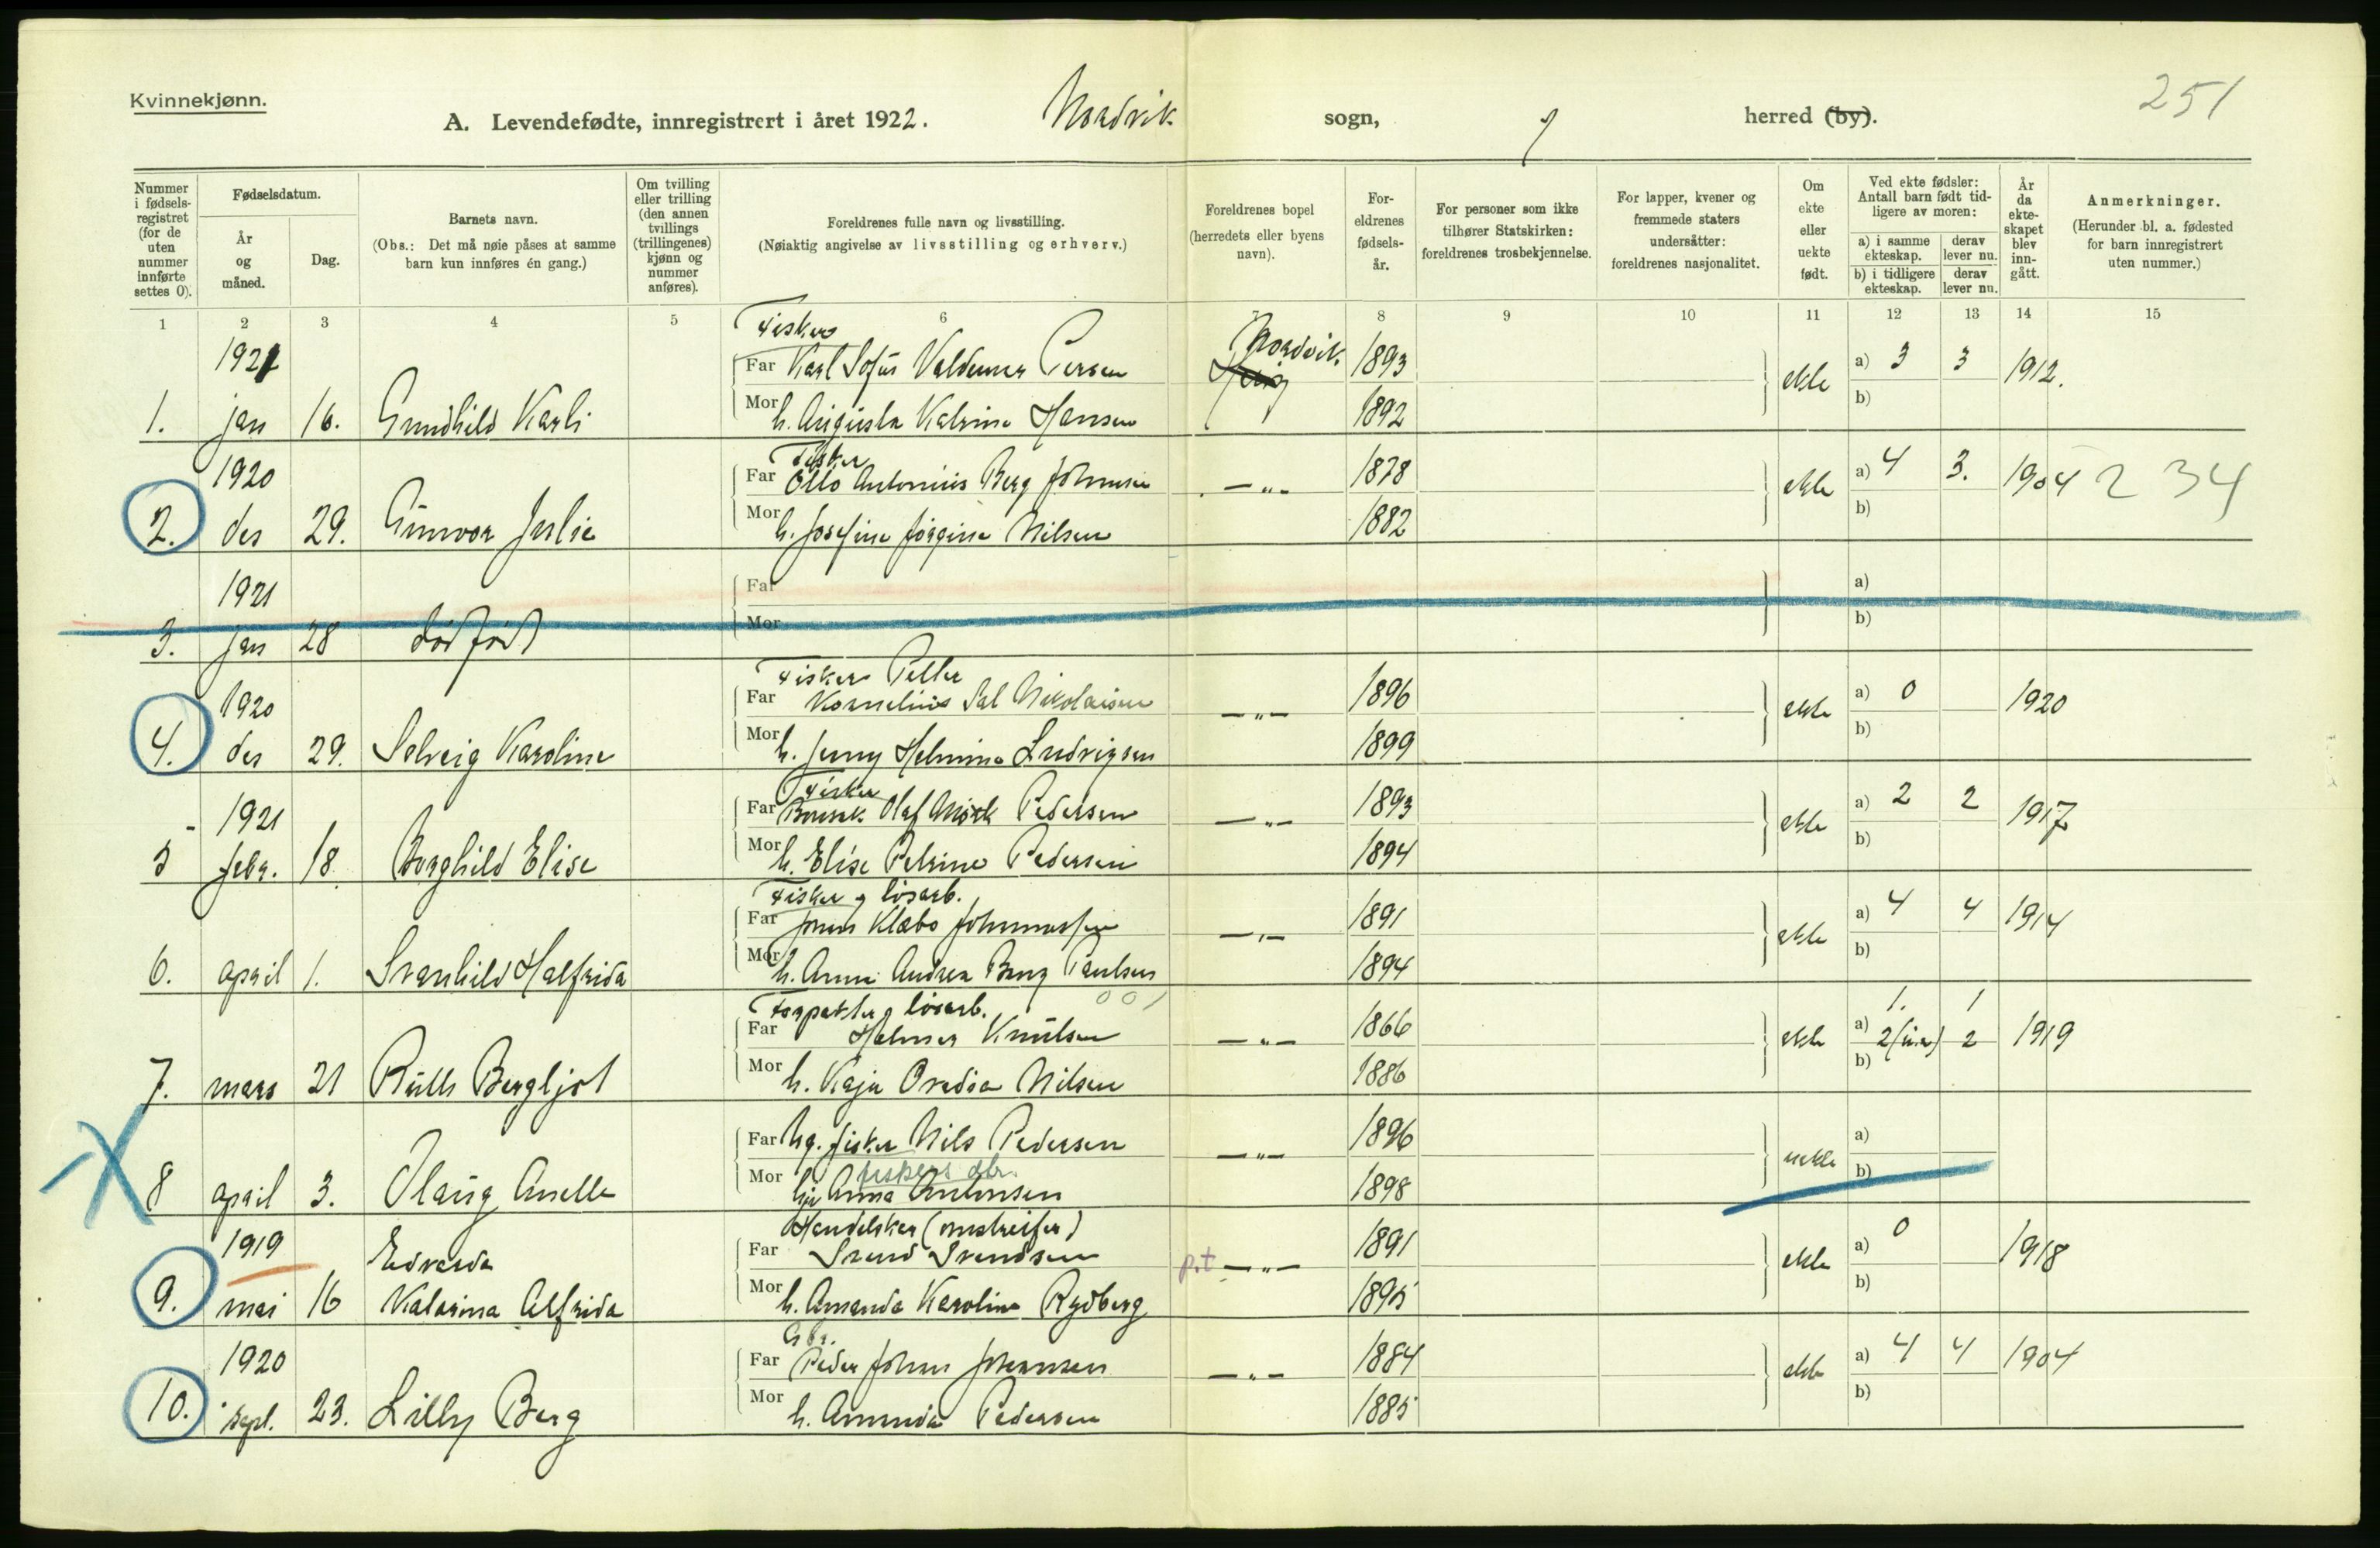 Kvinnekjønn.
251
A. Levendefødte, innregistrert i året 1922. Nordvik sogn, herred (by).
Nummer i fødsels-registret (for de uten nummer innførte settes 0).
Fødselsdatum.
År og måned.
Dag.
Barnets navn.
(Obs.: Det må nøie påses at samme barn kun innføres én gang.)
Om tvilling eller trilling (den annen tvillings (trillingenes) kjønn og nummer anføres).
Foreldrenes fulle navn og livsstilling.
(Nøiaktig angivelse av livsstilling og erhverv.)
Foreldrenes bopel (herredets eller byens navn).
For-eldrenes fødsels-år.
For personer som ikke tilhører Statskirken: foreldrenes trosbekjennelse.
For lapper, kvener og fremmede staters undersåtter: foreldrenes nasjonalitet.
Om ekte eller uekte født.
Ved ekte fødsler: Antall barn født tid-ligere av moren:
a) i samme ekteskap.
derav lever nu.
b) i tidligere ekteskap.
derav lever nu.
År da ekte-skapet blev inn-gått.
Anmerkninger.
(Herunder bl. a. fødested for barn innregistrert uten nummer.)
1 2 3 4 5 6 7 8 9 10 11 12 13 14 15
Fisker
1921 Far Karl Sofus Valdemar Persen Nordvik 1893 a) 3 3 1912.
1. jan 16. Gundhild Karli Mor h. Augusta Katrine Hansen 1892 ekte b)
Fisker
1920 Far Otto Antonius Berg Johnsen —"— 1878 a) 4 3. 1904 234
2. des 29. Gunvor Julie Mor h. Josefine Jørgine Nilsen 1882 ekte b)
1921 Far a)
3. jan 28 dødfød Mor b)
Fisker Petter
1920 Far Kornelius Sal Nikolaisen —"— 1896 a) 0 1920
4. des 29. Solveig Karoline Mor h. Jenny Helmine Ludvigsen 1899 ekte b)
Fisker
1921 Far Olaf Mørk Pedersen —"— 1893 a) 2 2 1917
5 febr. 18. Borghild Elise Mor h. Elise Petrine Pedersen 1894 ekte b)
Fisker og løsarb.
Far Jonas Klæbo Johannessen —"— 1891 a) 4 4 1914
6. april 1. Svanhild Halfrida Mor h. Anna Andrea Berg Paulsen 1894 ekte b)
Forpakter og løsarb. 001
1. 1
Far Helmer Knutsen —"— 1866 a) 2 2 1919
7. mars 21 Ruth Bergljot Mor h. Kaja Ovedia Nilsen 1886 ekte b)
Far Ug. fisker Nils Pedersen —"— 1896 a)
fiskers dtr.
8 april 3. Olaug Anette Mor Anna Antonsen 1898 uekte b)
Handelskar (omstreifer)
1919 Edvarda Far Svend Svendsen p.t —"— 1891 a) 0 1918
9. mai 16 Katarina Alfrida Mor h. Amanda Karoline Rydberg 1895 ekte b)
Gbr.
1920 Far Peder Johan Johannsen —"— 1884 a) 4 4 1904
10. sept. 23. Lilly Berg Mor h. Amanda Pedersen 1885 ekte b)